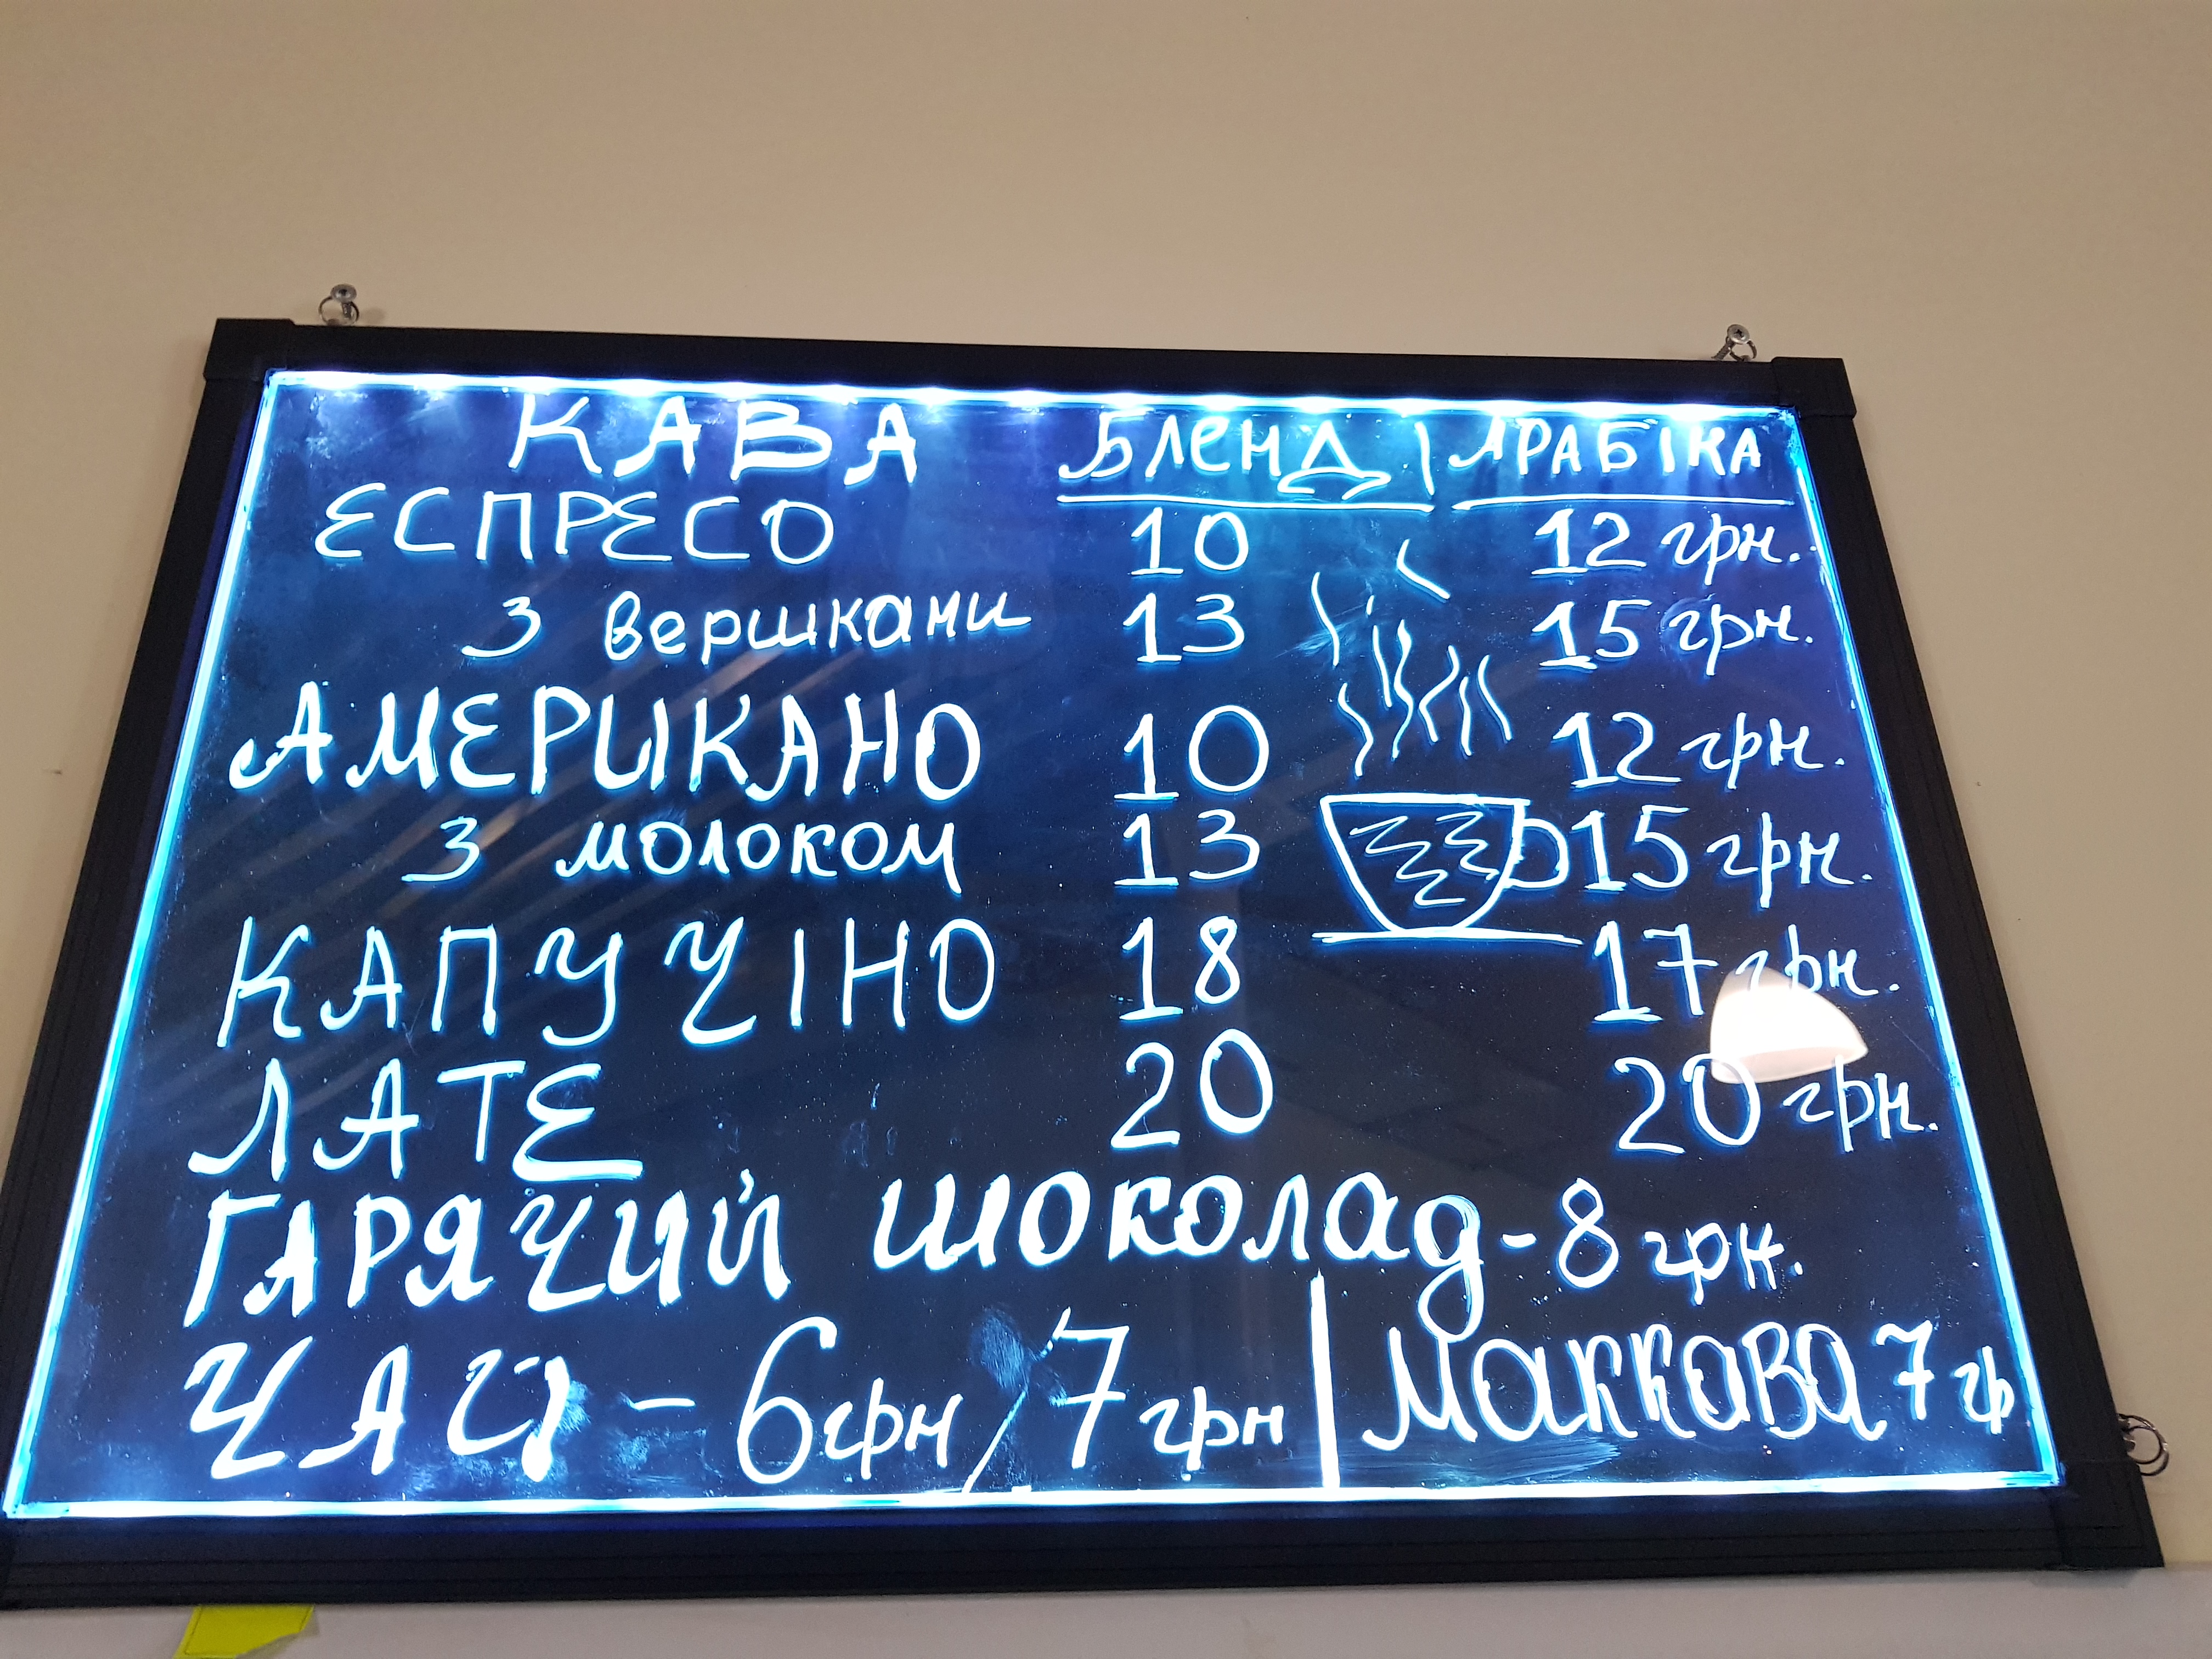 КАВА БЛЕНД | АРАБІКА
ЕСПРЕСО 10 12 грн.
З вершками 13 15 грн.
АМЕРИКАНО 10 12 грн.
З молоком 13 15 грн.
КАПУЧІНО 18 17 грн.
ЛАТЕ 20 20 грн.
ГАРЯЧИЙ шоколад - 8 грн.
ЧАЙ - 6 грн / 7 грн | МакКаВа 7 гр